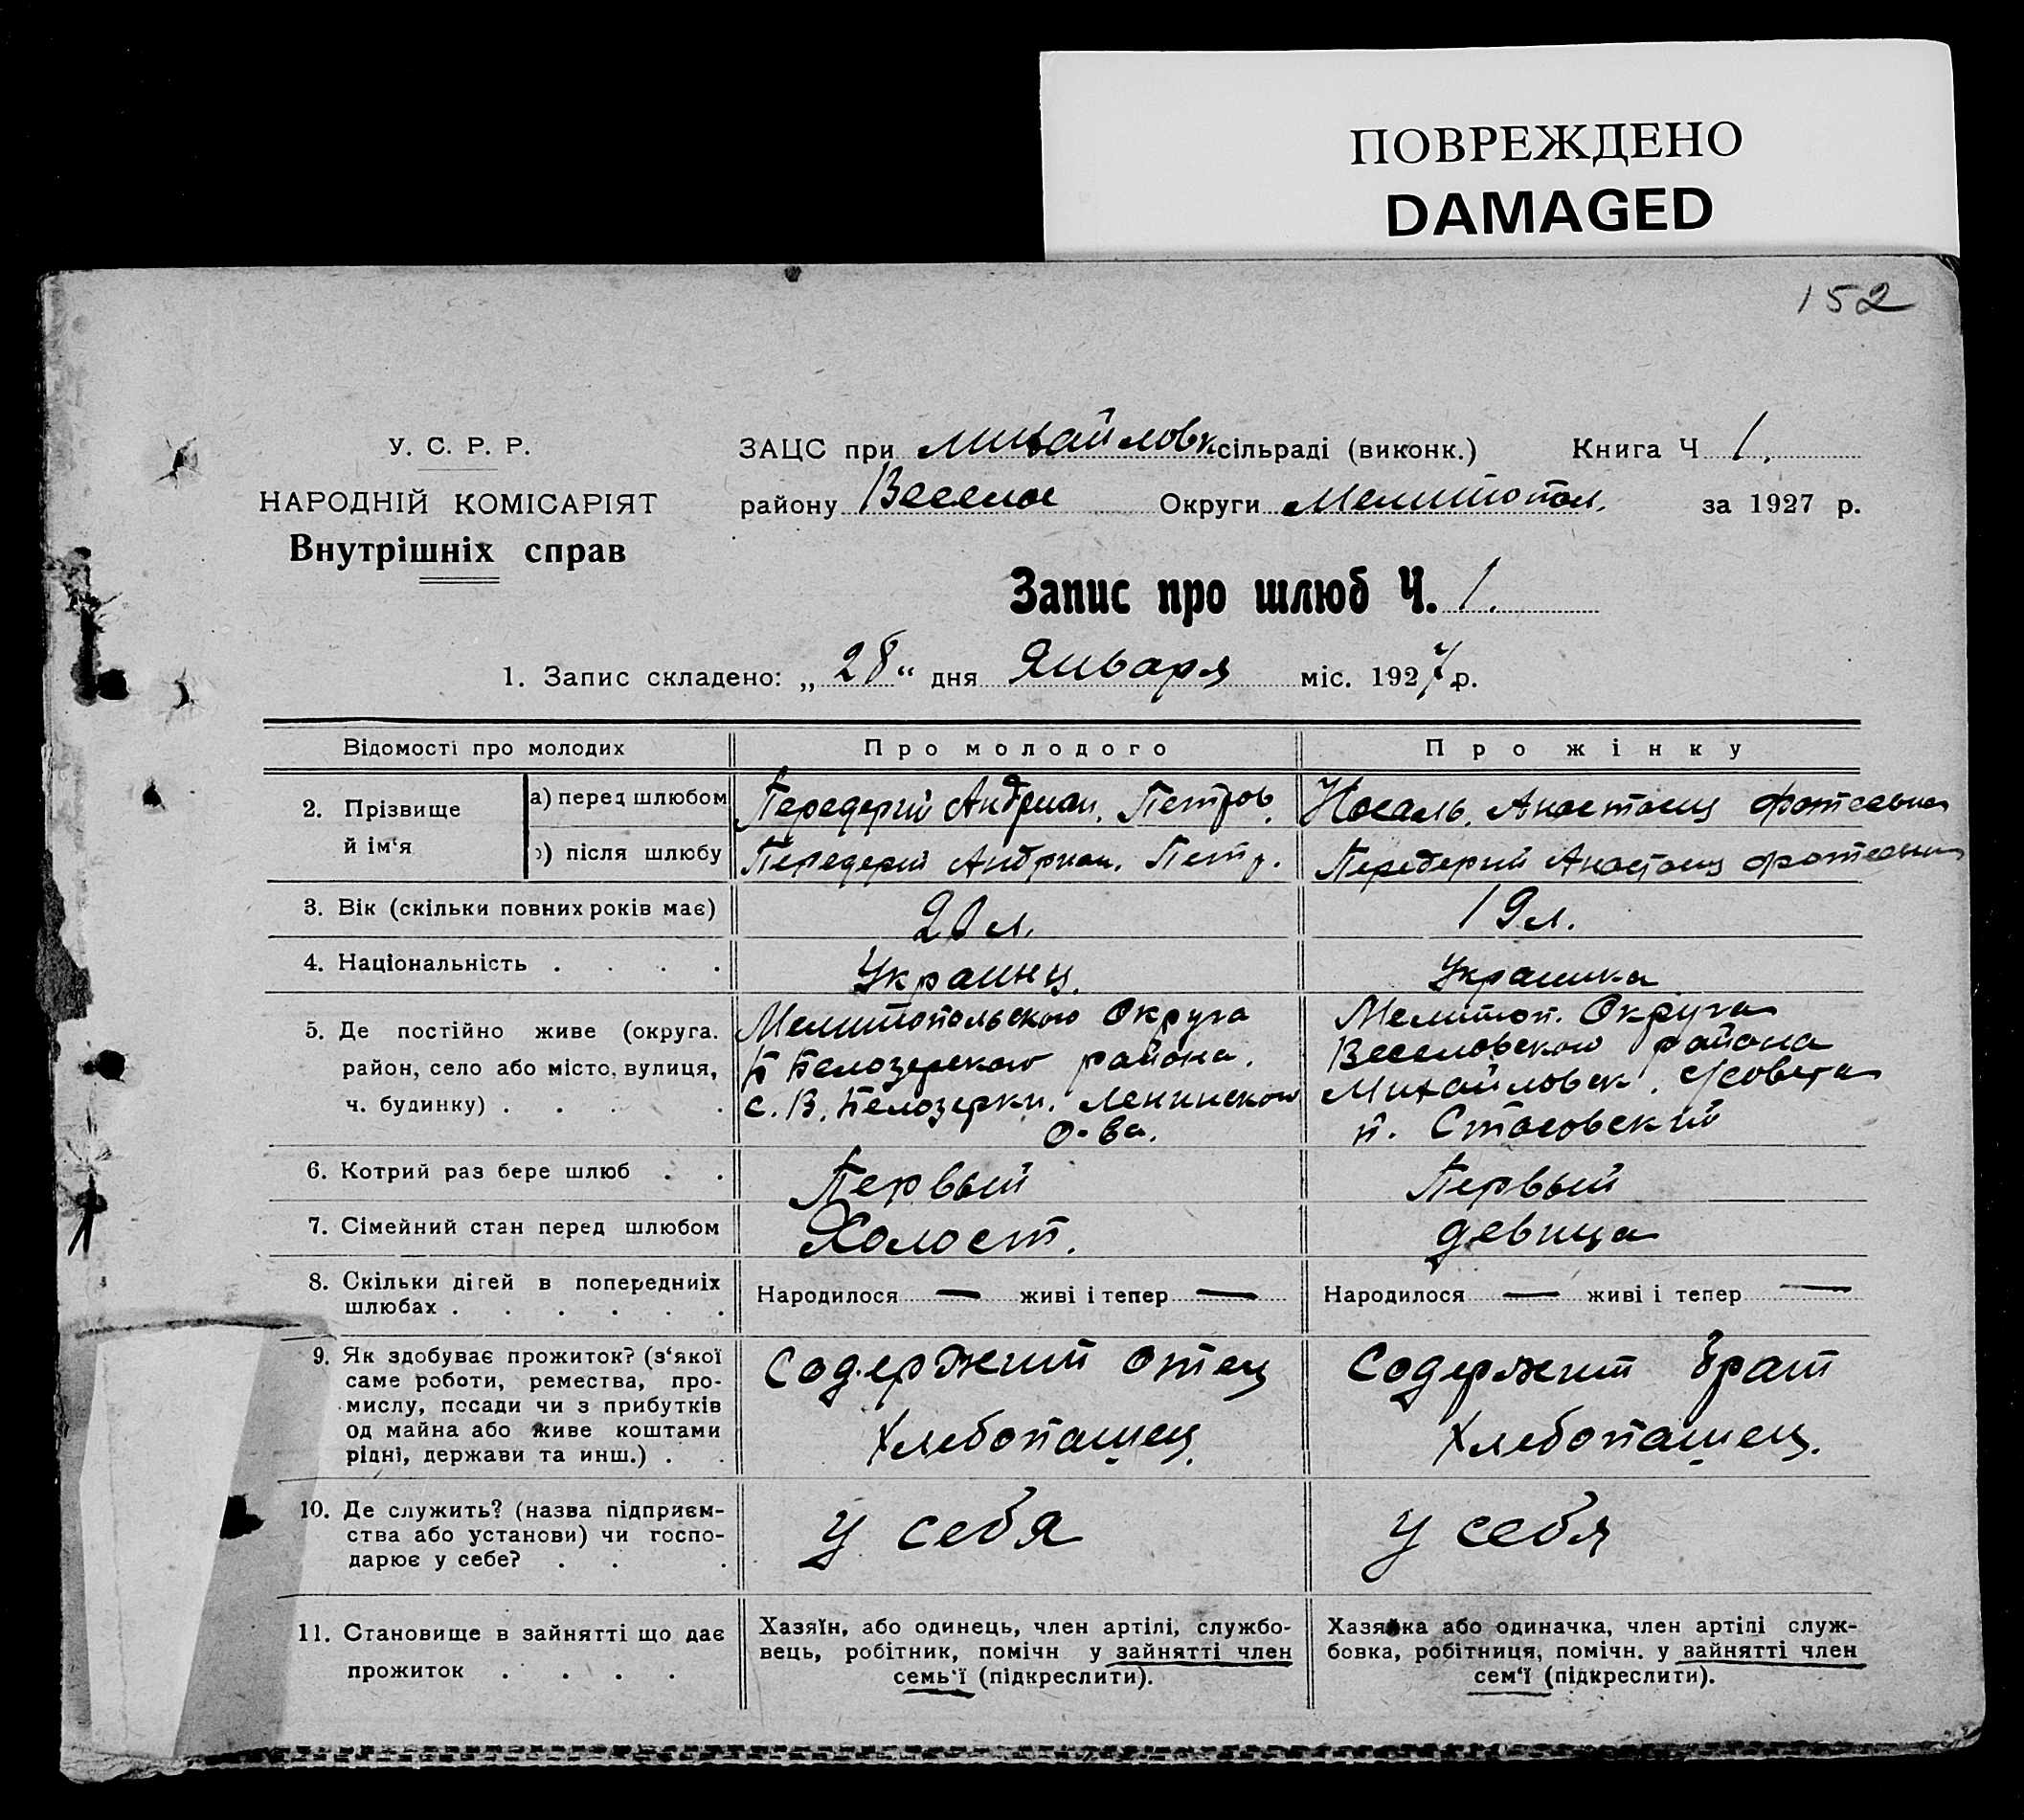 ПОВРЕЖДЕНО
DAMAGED
152
У. С. Р. Р.
НАРОДНІЙ КОМІСАРІЯТ
Внутрішніх справ
ЗАЦС при Михайловк сільраді (виконк.) Книга Ч 1.
району Веселое Округи Мелитопол. за 1927 р.
Запис про шлюб Ч. 1.
1. Запис складено: „28“ дня Января міс. 1927 р.
Відомості про молодих Про молодого Про жінку
2. Прізвище й ім‘я
а) перед шлюбом Передерий Андриан. Петров. Носаль. Анастасия
після шлюбу Передерий Андриан. Петр. Передерий Анастасия
3. Вік (скільки повних років має) 20 л. 19 л.
4. Національність . . . . Украинец. Украинка
5. Де постійно живе (округа. район, село або місто, вулиця, ч. будинку) . . . .
Мелитопольского Округа
Б Белозерского района.
с. В. Белозерки. Ленинского
О-ва.
Мелитоп. Округа
Веселовского района
Михайловск. с/совета
п. Стасовский
6. Котрий раз бере шлюб . . Первый Первый
7. Сімейний стан перед шлюбом Холост. девица
8. Скільки дітей в попередниіх шлюбах . . . . . . Народилося — живі і тепер — Народилося — живі і тепер —
9. Як здобуває прожиток? (з‘якої
саме роботи, ремества, про-
мислу, посади чи з прибутків
од майна або живе коштами
рідні, держави та инш.) . .
Содержит отец
Хлебопашец.
Содержит брат
Хлебопашец.
10. Де служить? (назва підприєм-
ства або установи) чи госпо-
дарює у себе? . . .
у себя у себя
11. Становище в зайнятті що дає
прожиток . . . .
Хазяїн, або одинець, член артілі, службо-
вець, робітник, помічн у зайнятті член
семь‘ї (підкреслити).
Хазяйка або одиначка, член артілі служ-
бовка, робітниця, помічн. у зайнятті член
сем‘ї (підкреслити).